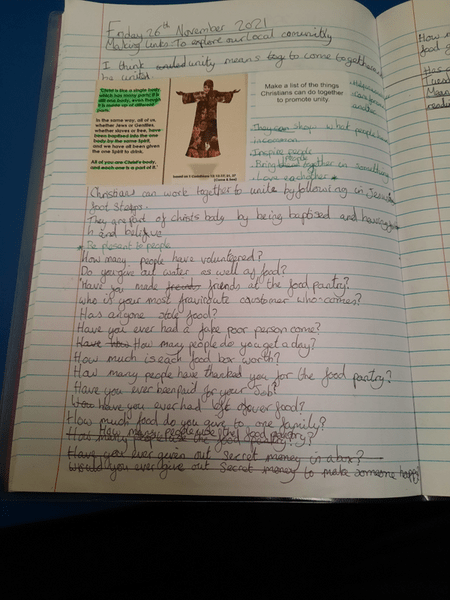 Friday 26th November 2021
Making links: To explore our local comunity
I think unity means to come together and
be united.
"Christ is like a single body
which has many parts; it is
still one body, even though
it is made up of different
parts.
In the same way, all of us,
whether Jews or Gentiles,
whether slaves or free, have
been baptised into the one
body by the same Spirit,
and we have all been given
the one Spirit to drink.
All of you are Christ's body,
and each one is a part of it."
Make a list of the things
Christians can do together
to promote unity
They can stop what people
in common
Inspire people
Bring people together in something
Love each other
Christians can work together to unite by following in Jesus's
foot steps.
They are part of christs body by being baptised and having
Be present to people
How many people have volunteered?
Do you give out water as well as food?
Have you made friends at the food pantry?
who is your most fravirate customer who comes?
Has anyone stole food?
Have you ever had a fake poor person come?
How many people do you get a day?
How much is each food box worth?
How many people have thanked you for the food pantry?
Have you ever been paid for your Job?
Have you ever had left over food?
How much food do you give to one family?
How many people use the food pantry?
Have you ever given out secret money in a box?
Would you ever give out secret money to make someone happy
How
food
Has
I was
Mean